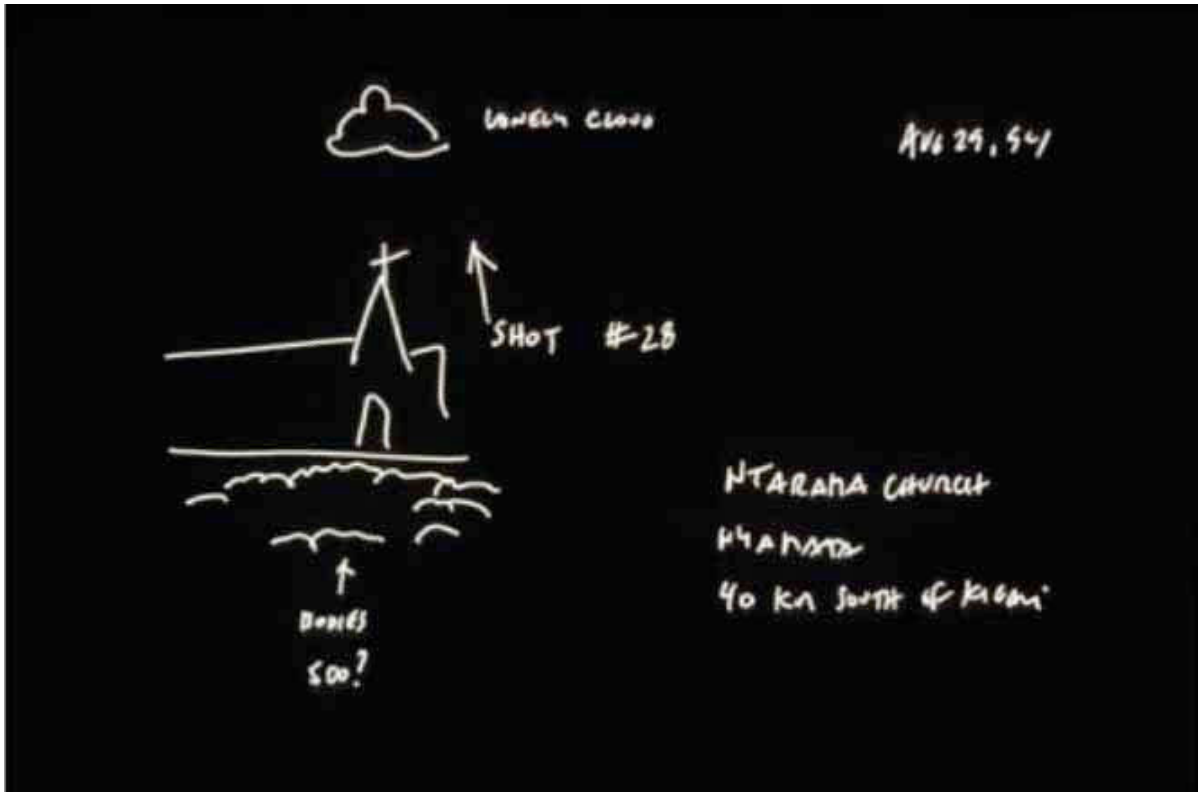 LONELY CLOUD
AUG 29, 94
SHOT #28
NTARAMA CHURCH
NYAMATA
40 KM SOUTH OF KIGALI
BODIES
500?